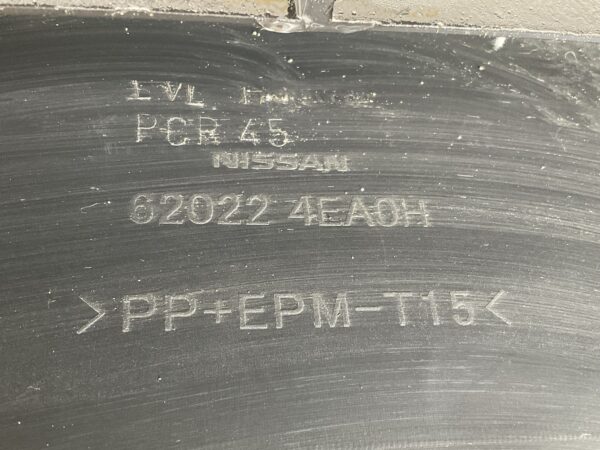 PCR 45
NISSAN
62022 4EA0H
>PP+EPM-T15<